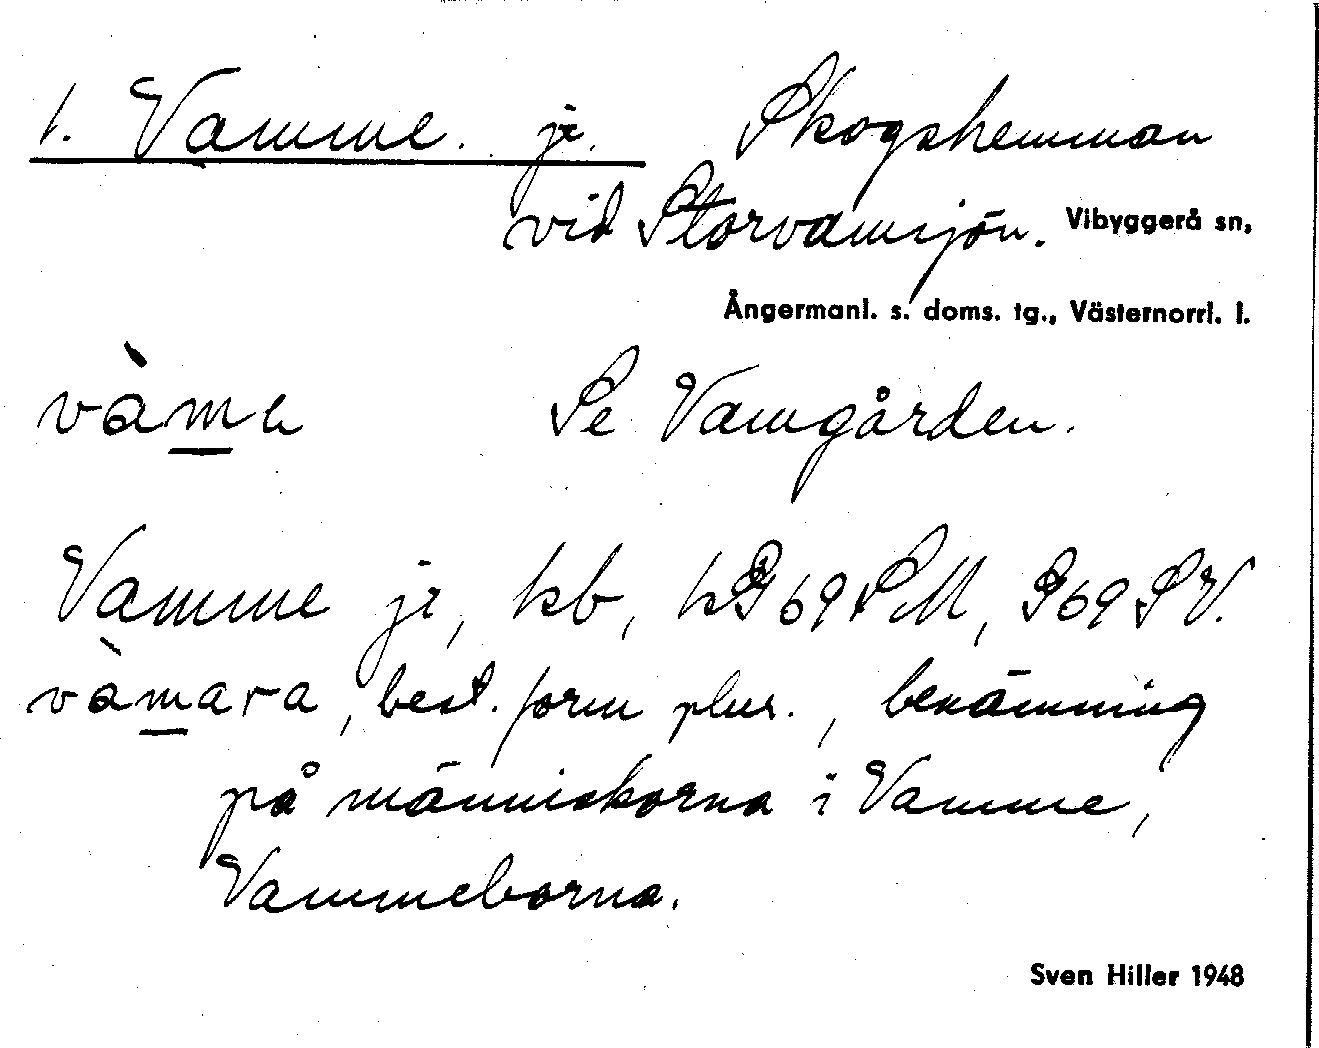 1. Vamme. jr. Skogshemman
vid Storvamsjön. Vibyggerå sn,
Ångermanl. s. doms. tg., Västernorrl. l.
vàma Se Vamgården.
Vamme jr, kb, hG69SM, G69SV.
vàmara, best. form plur., benämning
på människorna i Vamme,
Vammeborna.
Sven Hiller 1948